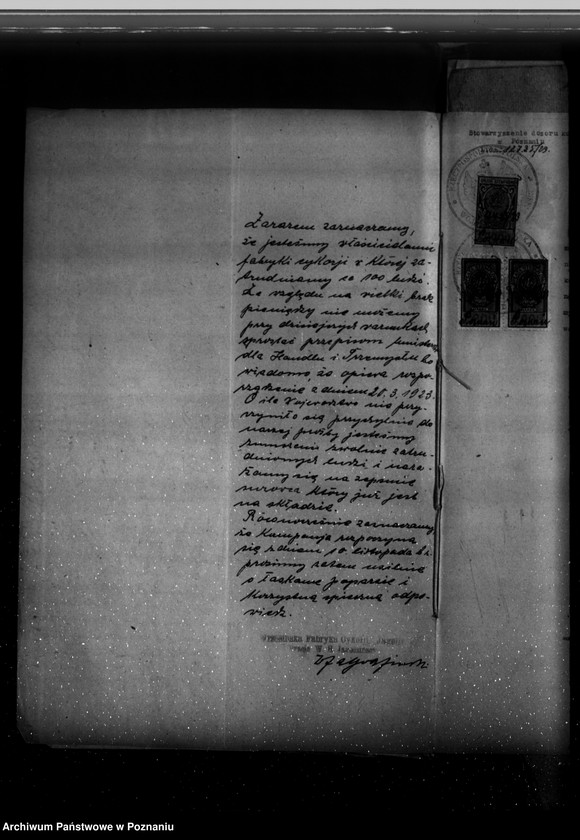 Zarazem zaznaczamy,
że jesteśmy właścicielami
fabryki cykorji w której za-
trudniamy 80 100 ludzi.
Ze względu na wielki brak
pieniędzy nie możemy
przy dzisiejszych warunkach
sprostać przepisom
dla Handlu i Przemysłu
wiadomo, że opiewa rozpo-
rządzenie z dniem 28.3.1923.
O ile Województwo nie przy-
czyniło się przychylnie do
naszej prośby jesteśmy
zmuszeni zwolnić zatru-
dnionych ludzi i nara-
żamy się na zepsucie
surowca który już jest
na składzie.
Równocześnie zaznaczamy
że Kampanja rozpoczyna
się z dniem 10 listopada b.r.
prosimy zatem usilnie
o łaskawe poparcie i
korzystną spieszną odpo-
wiedź.
Fabryka Cykorji
Stowarzyszenie Dozoru
w Poznaniu
Archiwum Państwowe w Poznaniu